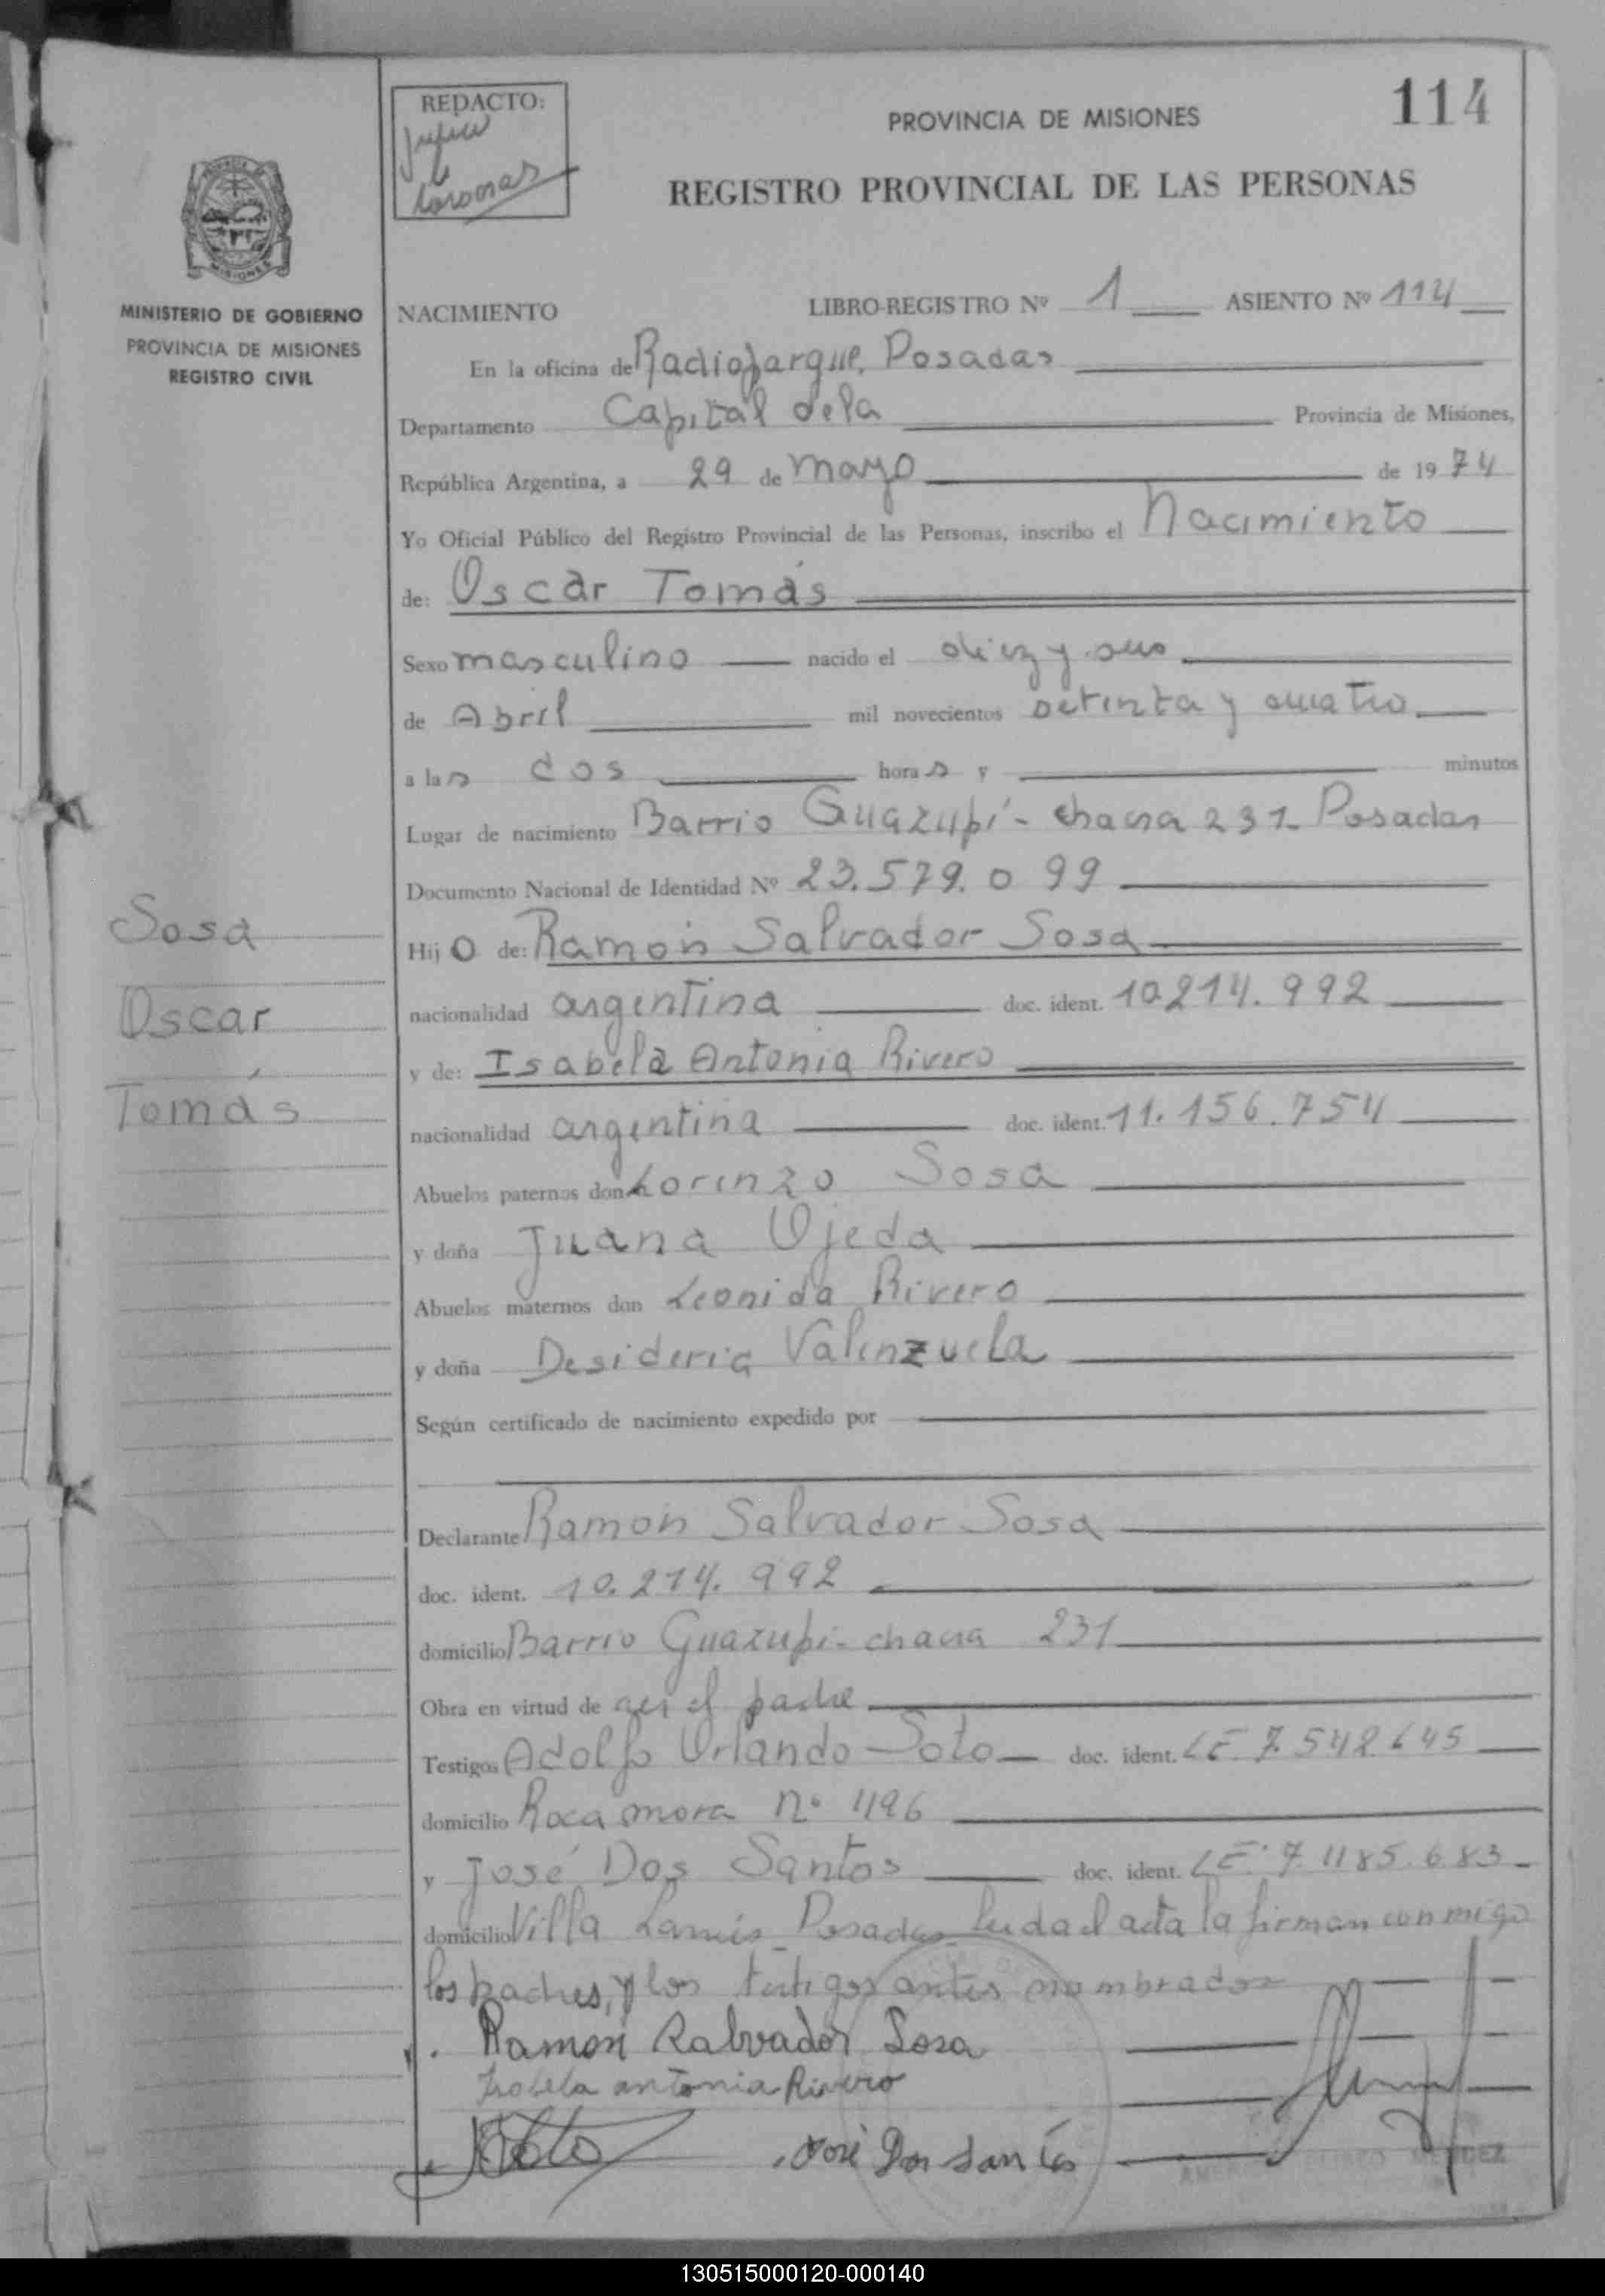 REDACTO:
114
PROVINCIA DE MISIONES
REGISTRO PROVINCIAL DE LAS PERSONAS
MINISTERIO DE GOBIERNO
PROVINCIA DE MISIONES
REGISTRO CIVIL
NACIMIENTO LIBRO-REGISTRO Nº 1 ASIENTO Nº 114
En la oficina de Radioparque, Posadas
Departamento Capital de la Provincia de Misiones,
República Argentina, a 29 de mayo de 1974
Yo Oficial Público del Registro Provincial de las Personas, inscribo el Nacimiento
de: Oscar Tomás
Sexo masculino nacido el diez y seis
de Abril mil novecientos setenta y cuatro
a las dos horas y minutos
Lugar de nacimiento Barrio Guazupí - chacra 231 - Posadas
Documento Nacional de Identidad Nº 23.579.099
Sosa
Hijo de: Ramón Salvador Sosa
Oscar
nacionalidad argentina doc. ident. 10.214.992
y de: Isabela Antonia Rivero
Tomás
nacionalidad argentina doc. ident. 11.156.754
Abuelos paternos don Lorenzo Sosa
y doña Juana Ojeda
Abuelos maternos don Leonida Rivero
y doña Desideria Valenzuela
Según certificado de nacimiento expedido por
Declarante Ramón Salvador Sosa
doc. ident. 10.214.992
domicilio Barrio Guazupi - chacra 231
Obra en virtud de ser el padre
Testigos Adolfo Orlando Soto doc. ident. LE 7.542.645
domicilio Rocamora nº 1196
y José Dos Santos doc. ident. LE 7.485.683
domicilio Villa Lanús Posadas Leida el acta la firman conmigo
los padres, y los testigos antes nombrados
Ramon Salvador Sosa
Isabela antonia Rivero
Soto José Dos Santos
130515000120-000140